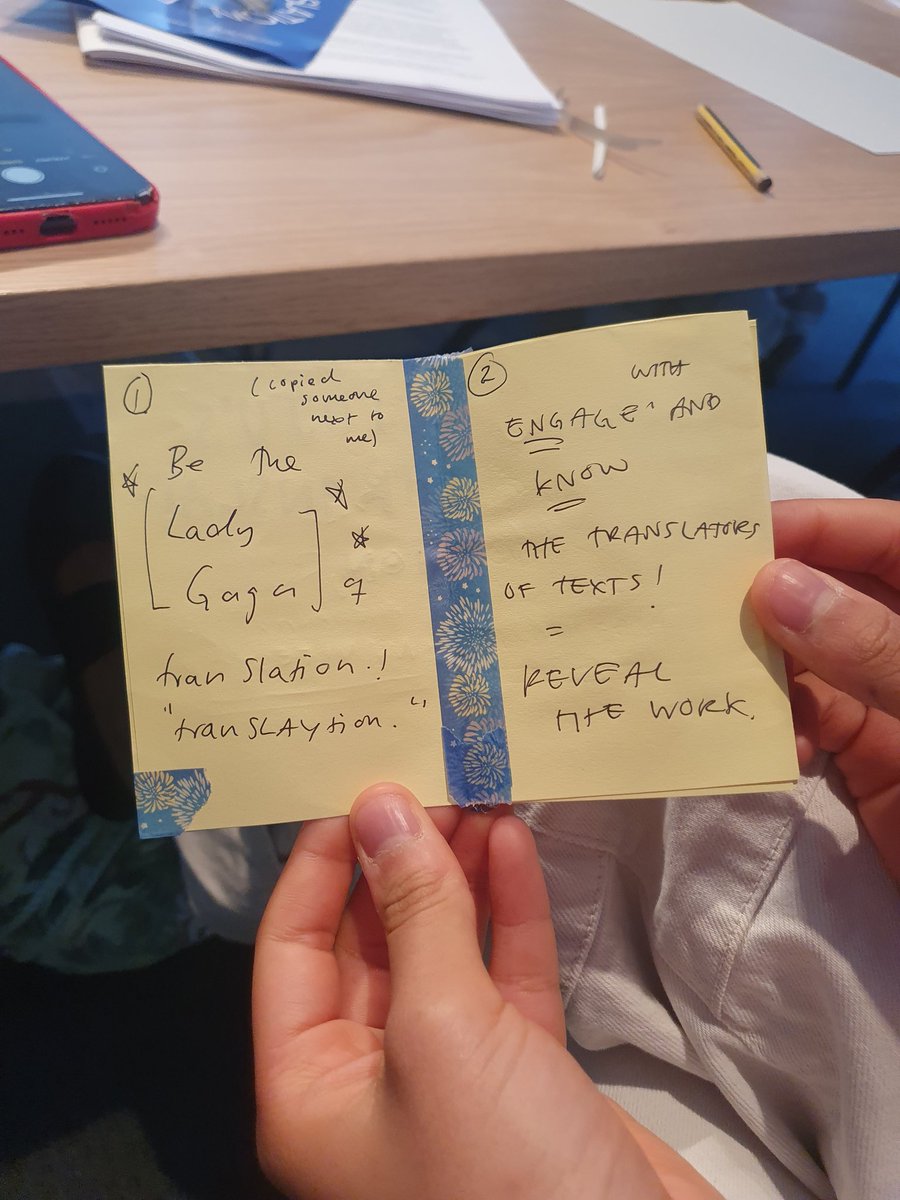 ①
(copied
someone
next to
me)
Be the
[Lady
Gaga]
of
translation.!
"transLAytion."
②
WITH
ENGAGE^ AND
KNOW
THE TRANSLATORS
OF TEXTS!
=
REVEAL
THE WORK.